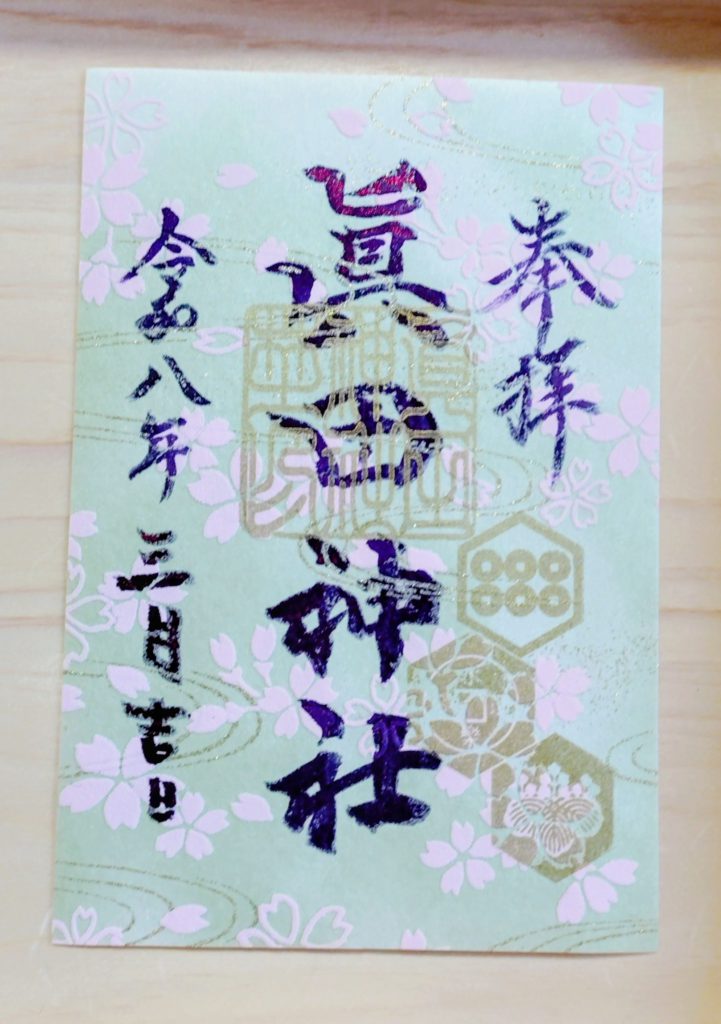 奉拝
眞田神社
令和八年三月吉日